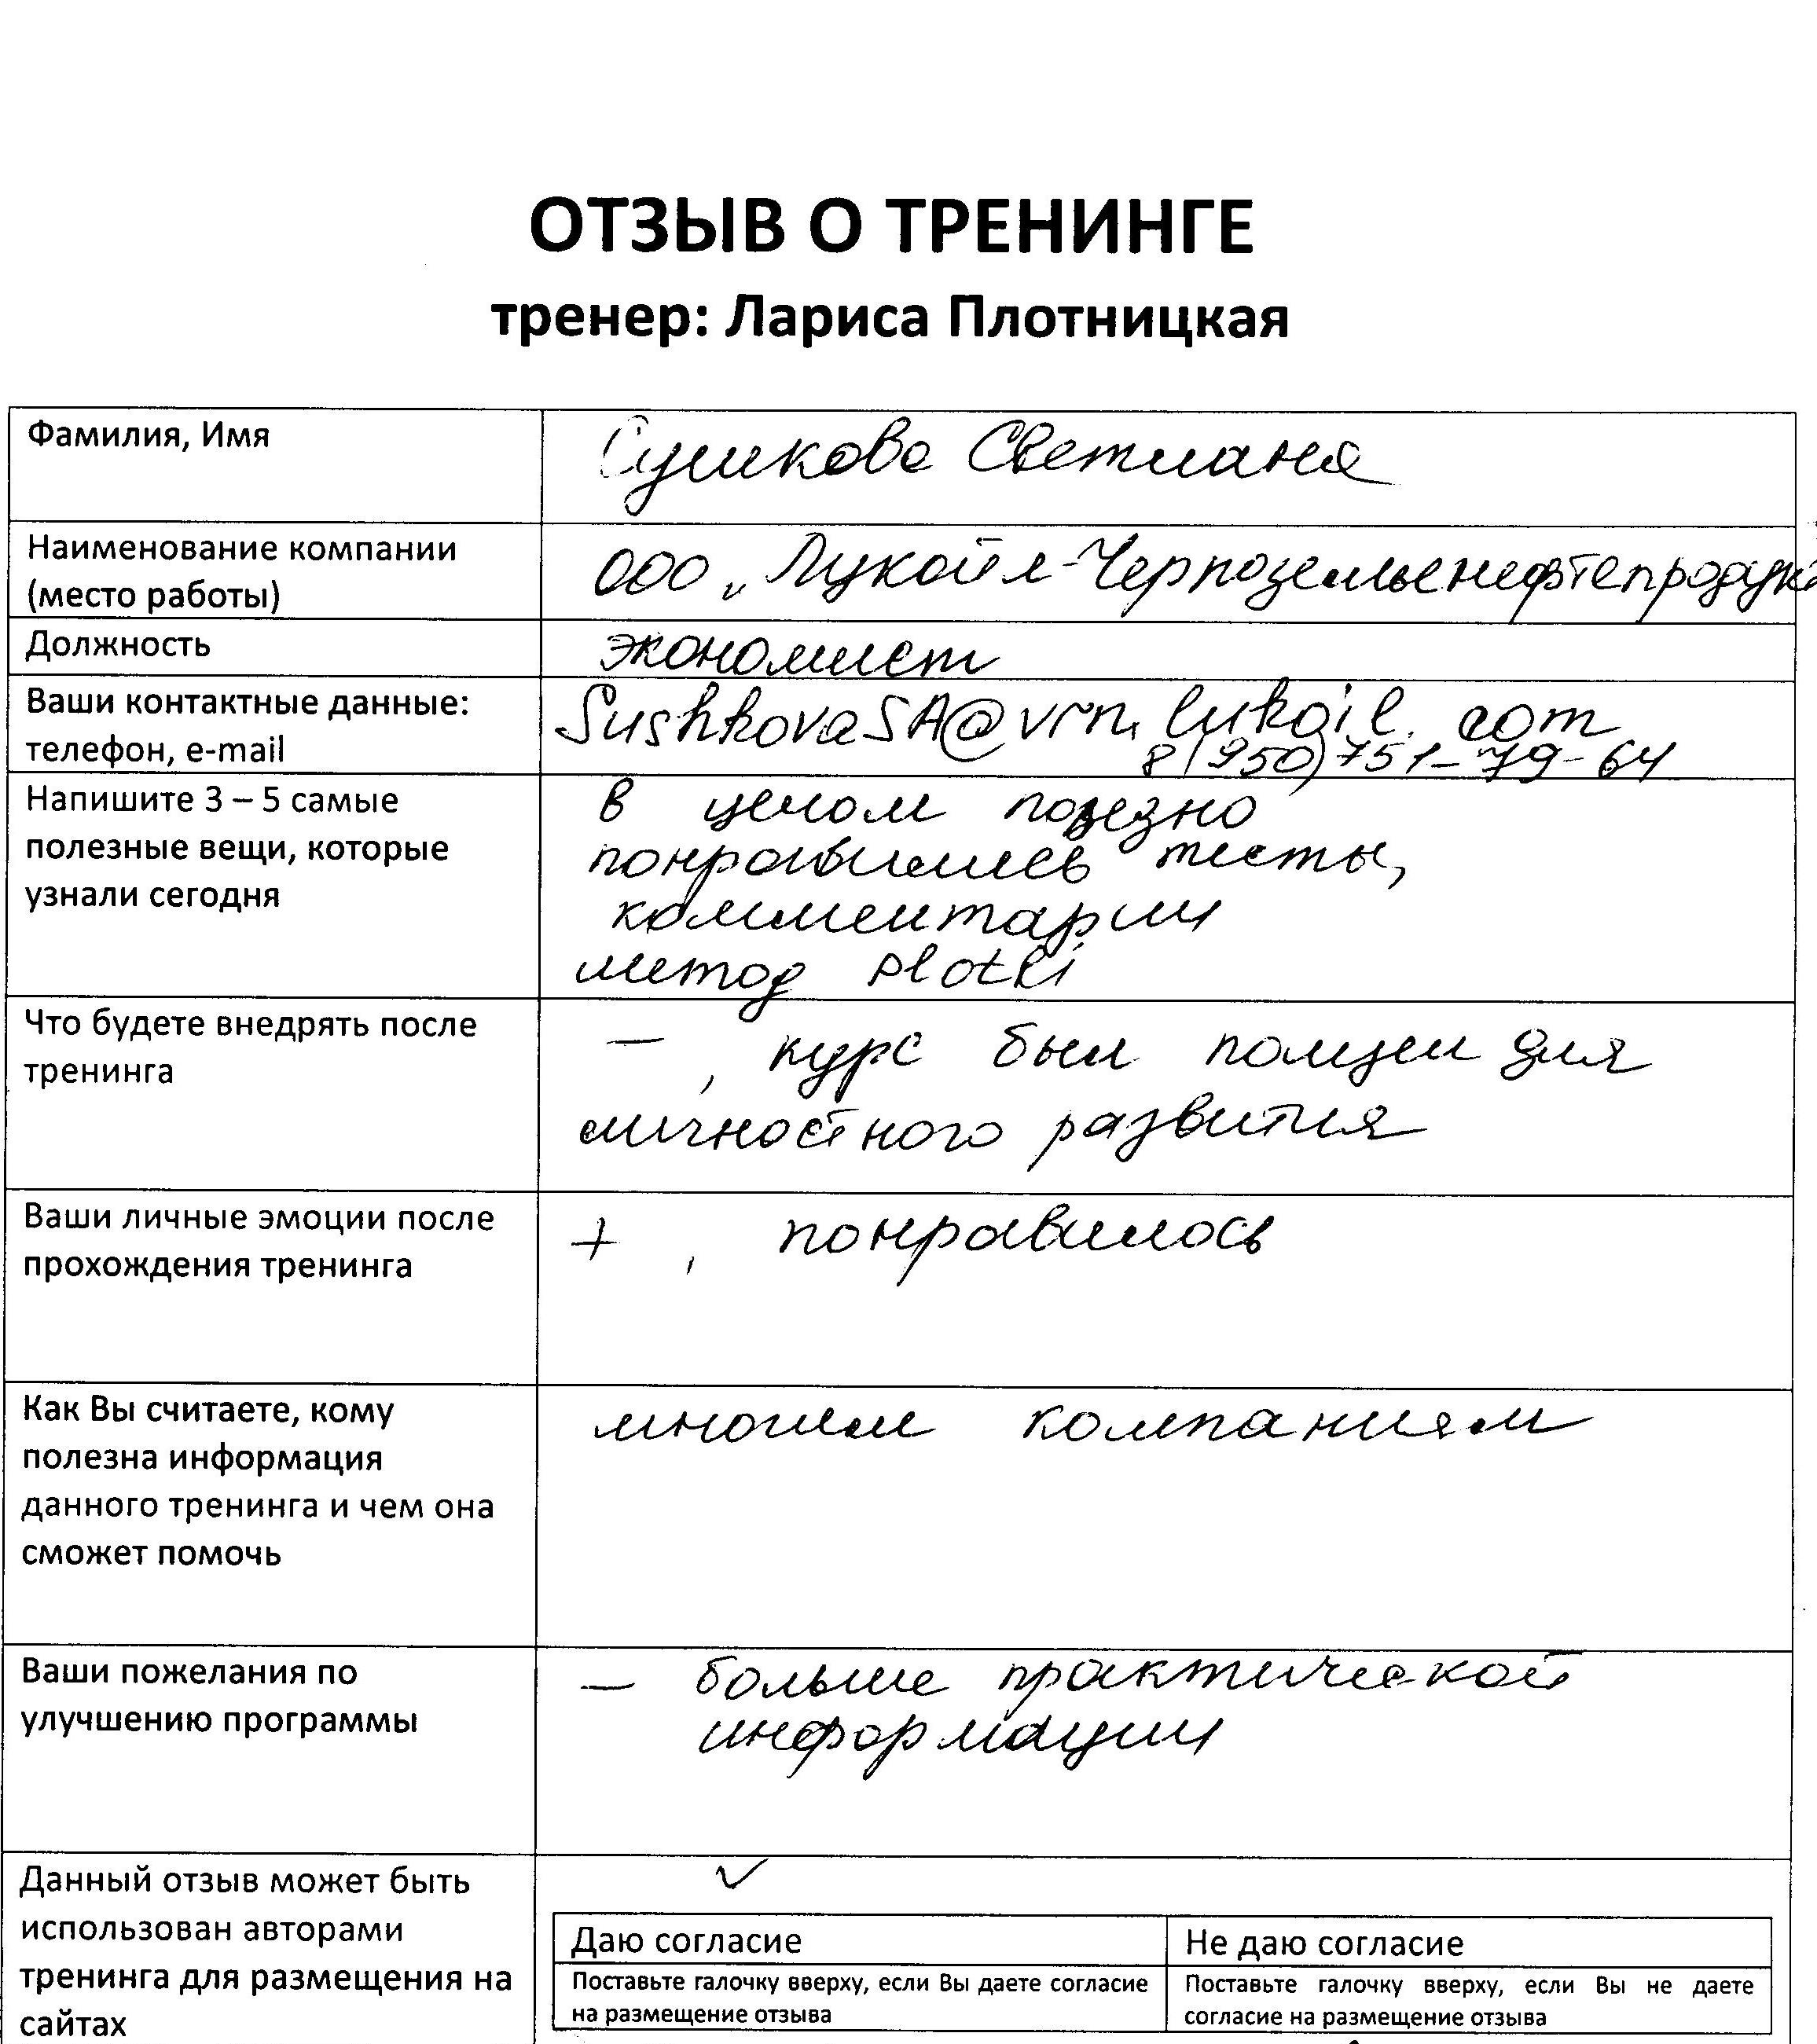 ОТЗЫВ О ТРЕНИНГЕ
тренер: Лариса Плотницкая
Фамилия, Имя
Сушкова Светлана
Наименование компании
(место работы)
ООО „Лукойл-Черноземьенефтепродук
Должность
экономист
Ваши контактные данные:
телефон, e-mail
SushkovaSA@vrn.lukoil.com
8(950)751-79-64
Напишите 3 – 5 самые
полезные вещи, которые
узнали сегодня
в целом полезно
понравились тесты,
комментарии
метод Plotki
Что будете внедрять после
тренинга
— , курс был полезен для
личностного развития
Ваши личные эмоции после
прохождения тренинга
+ , понравилось
Как Вы считаете, кому
полезна информация
данного тренинга и чем она
сможет помочь
многим компаниям
Ваши пожелания по
улучшению программы
— больше практической
информации
Данный отзыв может быть
использован авторами
тренинга для размещения на
сайтах
✓
Даю согласие
Поставьте галочку вверху, если Вы даете согласие
на размещение отзыва
Не даю согласие
Поставьте галочку вверху, если Вы не даете
согласие на размещение отзыва